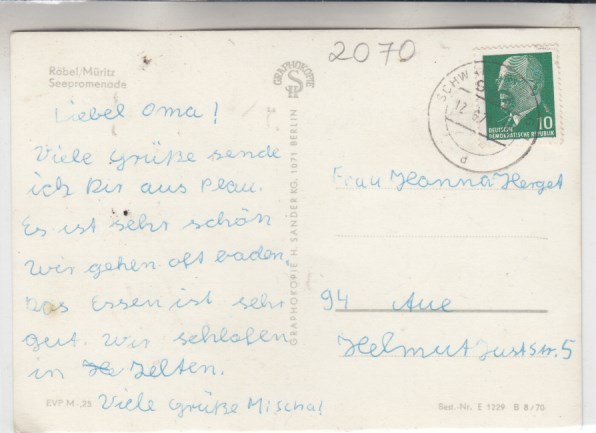 2070
Röbel/Müritz
Seepromenade
Liebe Oma!
Viele Grüße sende
ich Dir aus Plau.
Es ist sehr schön
Wir gehen oft baden.
Das Essen ist sehr
gut. Wir schlafen
in Zelten.
Viele Grüße Mischa!
EVP M -,25
GRAPHOKOPIE
GRAPHOKOPIE H. SANDER KG, 1071 BERLIN
10
DEUTSCHE
DEMOKRATISCHE REPUBLIK
Frau Hanna Herget
94 Aue
Helmut Just Str. 5
Best.-Nr. E 1229 B 8/70